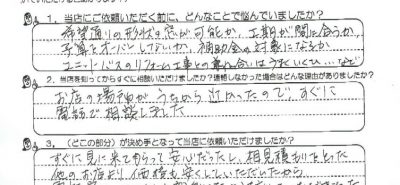 1、当店にご依頼いただく前に、どんなことで悩んでいましたか?
希望通りの形状の窓が可能か、工期が間に合うか、
予算をオーバーしないか、補助金の対象になるか
ユニットバスのリフォーム工事との兼ね合いはうまくいくか、…など
2、当店を知ってからすぐに相談いただけましたか?連絡しなかった場合はどんな理由がありましたか?
お店の場所がうちから近かったので、すぐに
電話で相談しました
3、(どこの部分)が決め手となって当店に依頼いただけましたか?
すぐに見に来てもらって安心だったし、相見積もりをとった
他のお店より、価格も安くしていただいたから